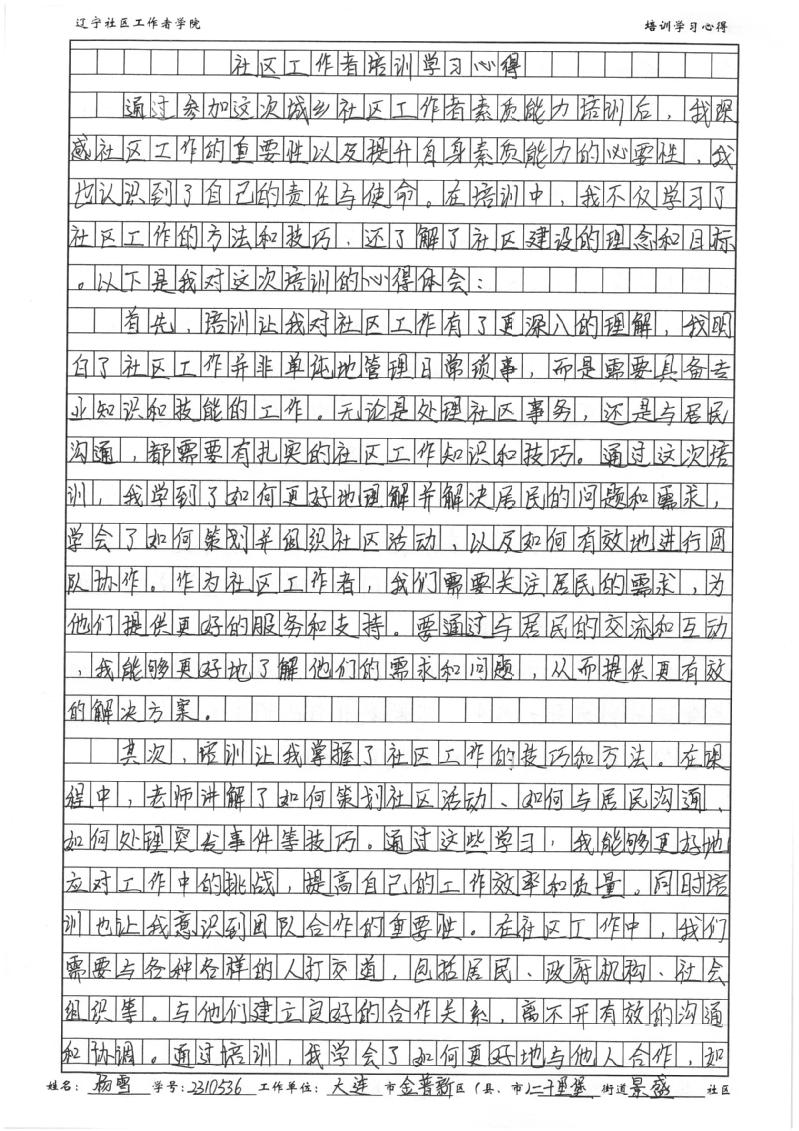 辽宁社区工作者学院 培训学习心得
社区工作者培训学习心得
通过参加这次城乡社区工作者素质能力培训后，我深
感社区工作的重要性以及提升自身素质能力的必要性，我
也认识到了自己的责任与使命。在培训中，我不仅学习了
社区工作的方法和技巧，还了解了社区建设的理念和目标
。以下是我对这次培训的心得体会：
首先，培训让我对社区工作有了更深入的理解，我明
白了社区工作并非单纯地管理日常琐事，而是需要具备专
业知识和技能的工作。无论是处理社区事务，还是与居民
沟通，都需要有扎实的社区工作知识和技巧。通过这次培
训，我学到了如何更好地理解并解决居民的问题和需求，
学会了如何策划并组织社区活动，以及如何有效地进行团
队协作。作为社区工作者，我们需要关注居民的需求，为
他们提供更好的服务和支持。要通过与居民的交流和互动
，我能够更好地了解他们的需求和问题，从而提供更有效
的解决方案。
其次，培训让我掌握了社区工作的技巧和方法。在课
程中，老师讲解了如何策划社区活动、如何与居民沟通、
如何处理突发事件等技巧。通过这些学习，我能够更好地
应对工作中的挑战，提高自己的工作效率和质量。同时培
训也让我意识到团队合作的重要性。在社区工作中，我们
需要与各种各样的人打交道，包括居民、政府机构、社会
组织等。与他们建立良好的合作关系，离不开有效的沟通
和协调。通过培训，我学会了如何更好地与他人合作，如
姓名：杨雪 学号：2310536 工作单位：大连市金普新区（县、市）二十里堡街道景盛社区